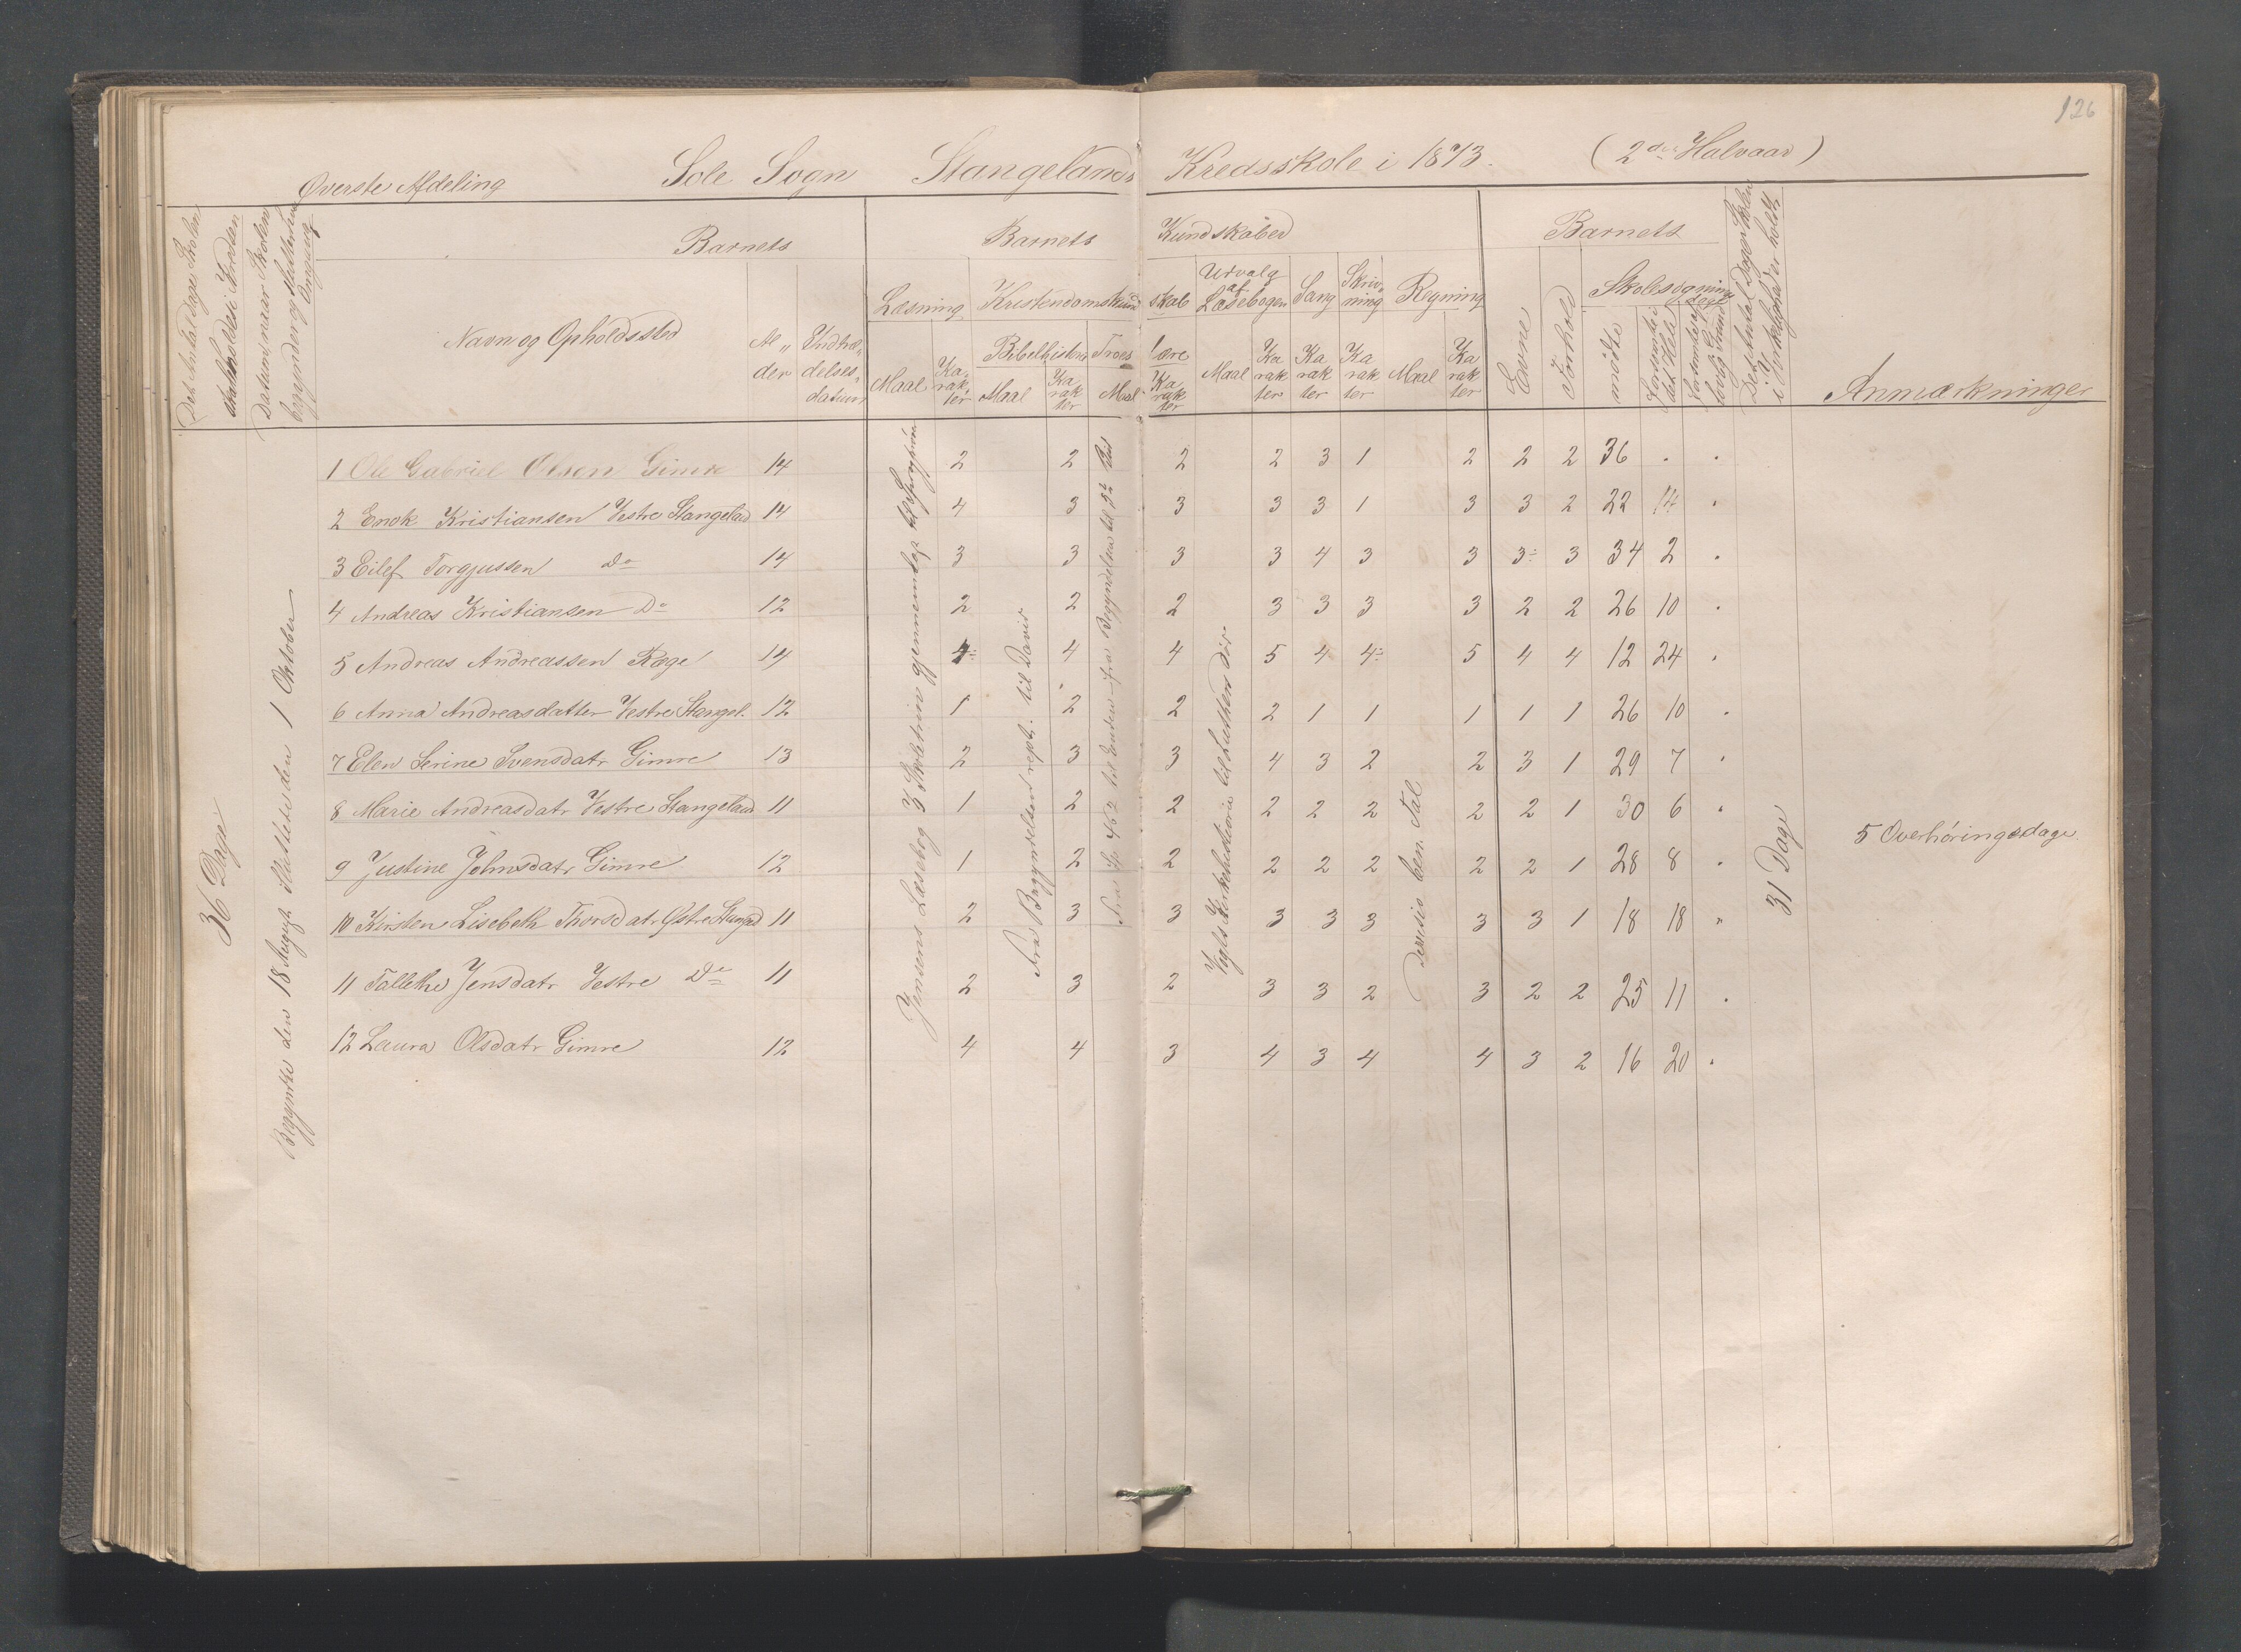 126
Overste Afdeling Sole Sogn Stangelands Kredsskole i 1873. (2det Halvaar)
Det Antal Dage Skolen skal holdes i Kredsen
Datum, naar Skolen begynder og slutter hver Omgang
Barnets
Navn og Opholdssted
Al„der
Indtræ„delses„datum
Barnets Kundskaber
Læsning
Maal
Karakter
Kristendomskundskab
Bibelhistorie
Maal
Karakter
Troeslære
Maal
Karakter
Udvalg af Læsebogen
Maal
Karakter
Sang
Karakter
Skrivning
Karakter
Regning
Maal
Karakter
Barnets
Evne
Forhold
Skolesøgning
mødte
forsømte i det Hele
forsømte af lovlig Grund
Det Antal Dage Skolen i Virkelighed er holdt
Anmærkninger
36 Dage
Begyndte den 18 August sluttede den 1 Oktober
Jensens Læsebog 3 Skoletrin gjennemlæst til
Fra Begyndelsen rept. til David
Vogts Kirkehistorie til Luthers Død
Decisio ben. Tal
31 Dage
5 Overhøringsdage.
1 Ole Gabriel Olsen Gimre 14 2 2 2 2 3 1 2 2 2 36 . .
2 Enok Kristiansen Vestre Stangelad 14 4 3 3 3 3 1 3 3 2 22 14 .
3 Eilef Torgjussen Do 14 3 3 3 3 4 3 3 3÷ 3 34 2 .
4 Andreas Kristiansen Do 12 2 2 2 3 3 3 3 2 2 26 10 .
5 Andreas Andreassen Røge 14 4÷ 4 4 5 4 4÷ 5 4 4 12 24 .
6 Anna Andreasdatter Vestre Stangel. 12 1 2 2 2 1 1 1 1 1 26 10 .
7 Elen Serine Svensdatr Gimre 13 2 3 3 4 3 2 2 3 1 29 7 .
8 Marie Andreasdatr Vestre Stangeland 11 1 2 2 2 2 2 2 2 1 30 6 .
9 Justine Johnsdatr Gimre 12 1 2 2 2 2 2 2 2 1 28 8 .
10 Kirsten Lisebeth Thorsdatr Østre Stangld 11 2 3 3 3 3 3 3 3 1 18 18 .
11 Tallethe Jensdatr Vestre Do 11 2 3 2 3 3 2 3 2 2 25 11 .
12 Laura Olsdatr Gimre 12 4 4 3 4 3 4 4 3 2 16 20 .